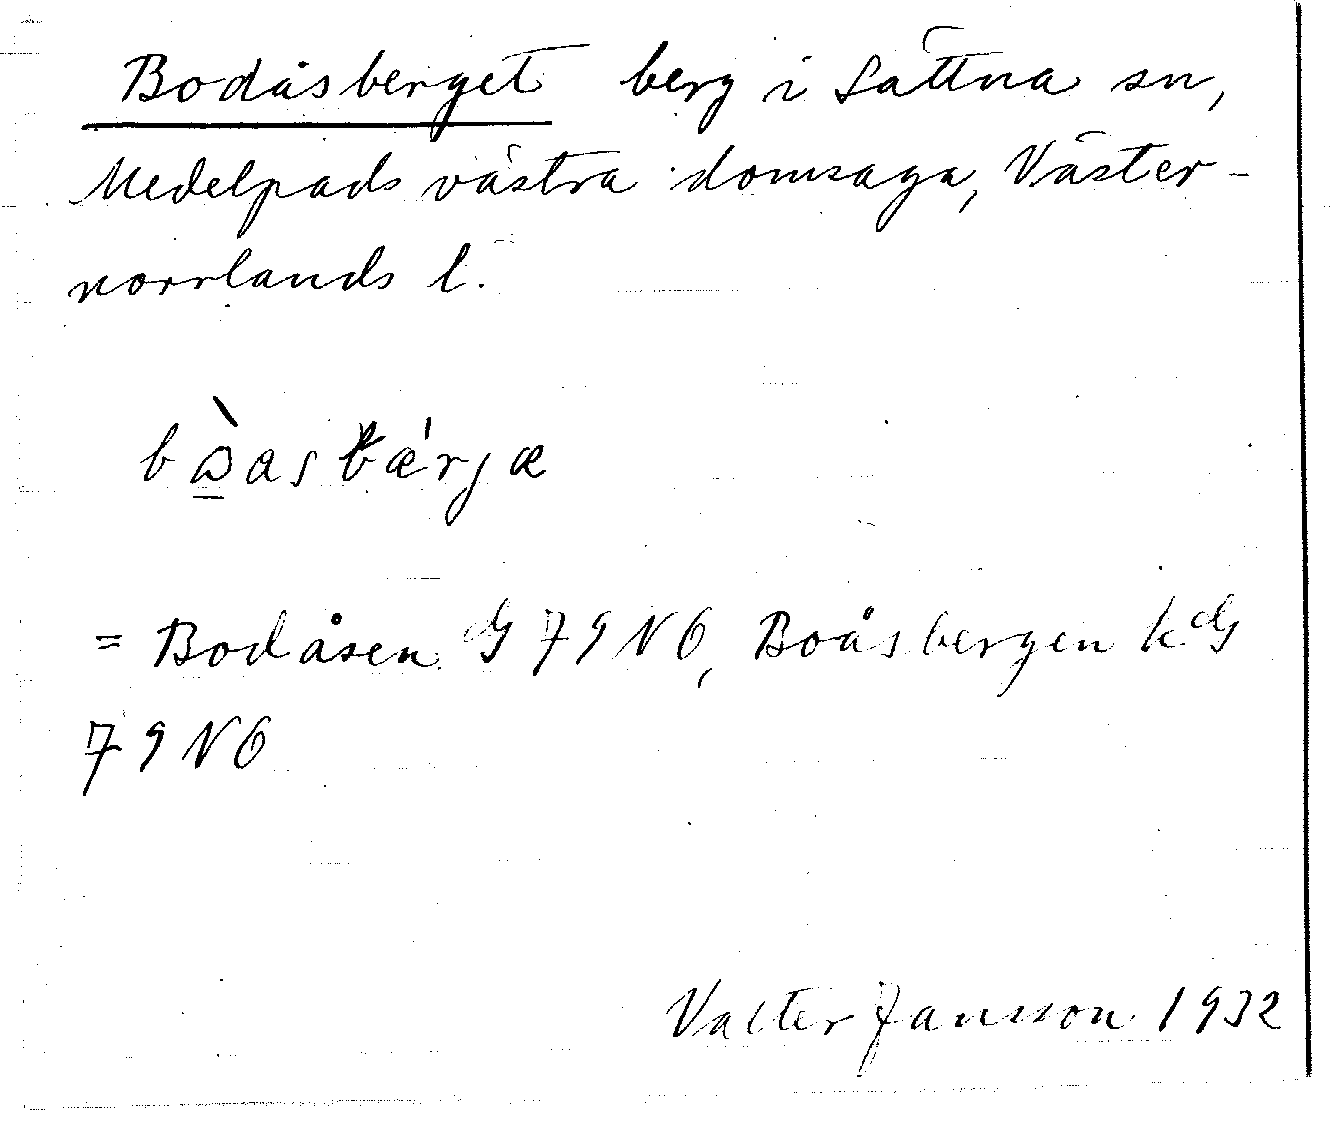 Bodåsberget berg i Sättna sn,
Medelpads västra domsaga, Väster-
norrlands l.
= Bodåsen G 79 NO, Boåsbergen k G
79 NO
Valter Jansson 1932